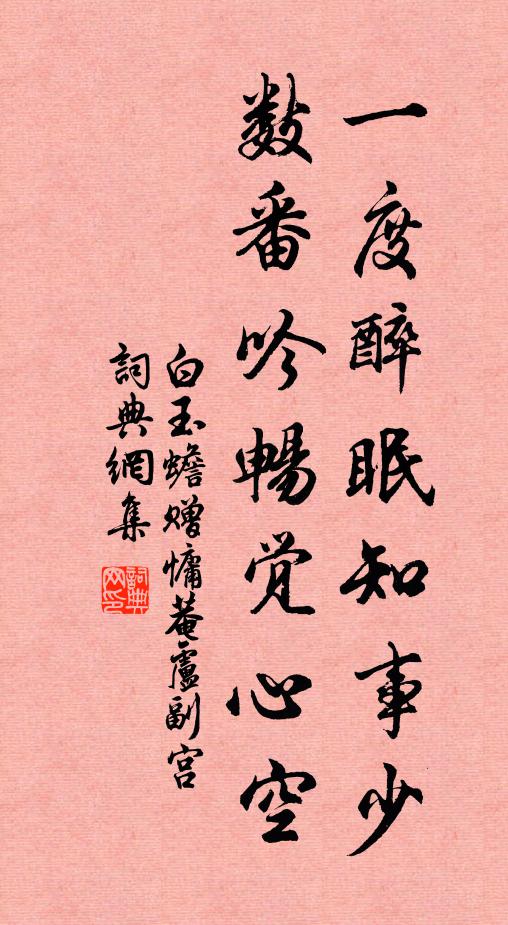 一度醉眠知事少
数番吟暢觉心空
白玉蟾赠慵菴盧副宫
詞典網集
詞典网印